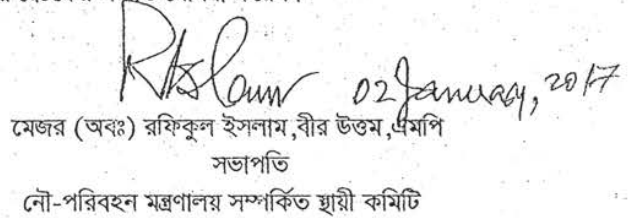 RIslam 02 January, 2017
মেজর (অবঃ) রফিকুল ইসলাম,বীর উত্তম,এমপি
সভাপতি
নৌ-পরিবহন মন্ত্রণালয় সম্পর্কিত স্থায়ী কমিটি